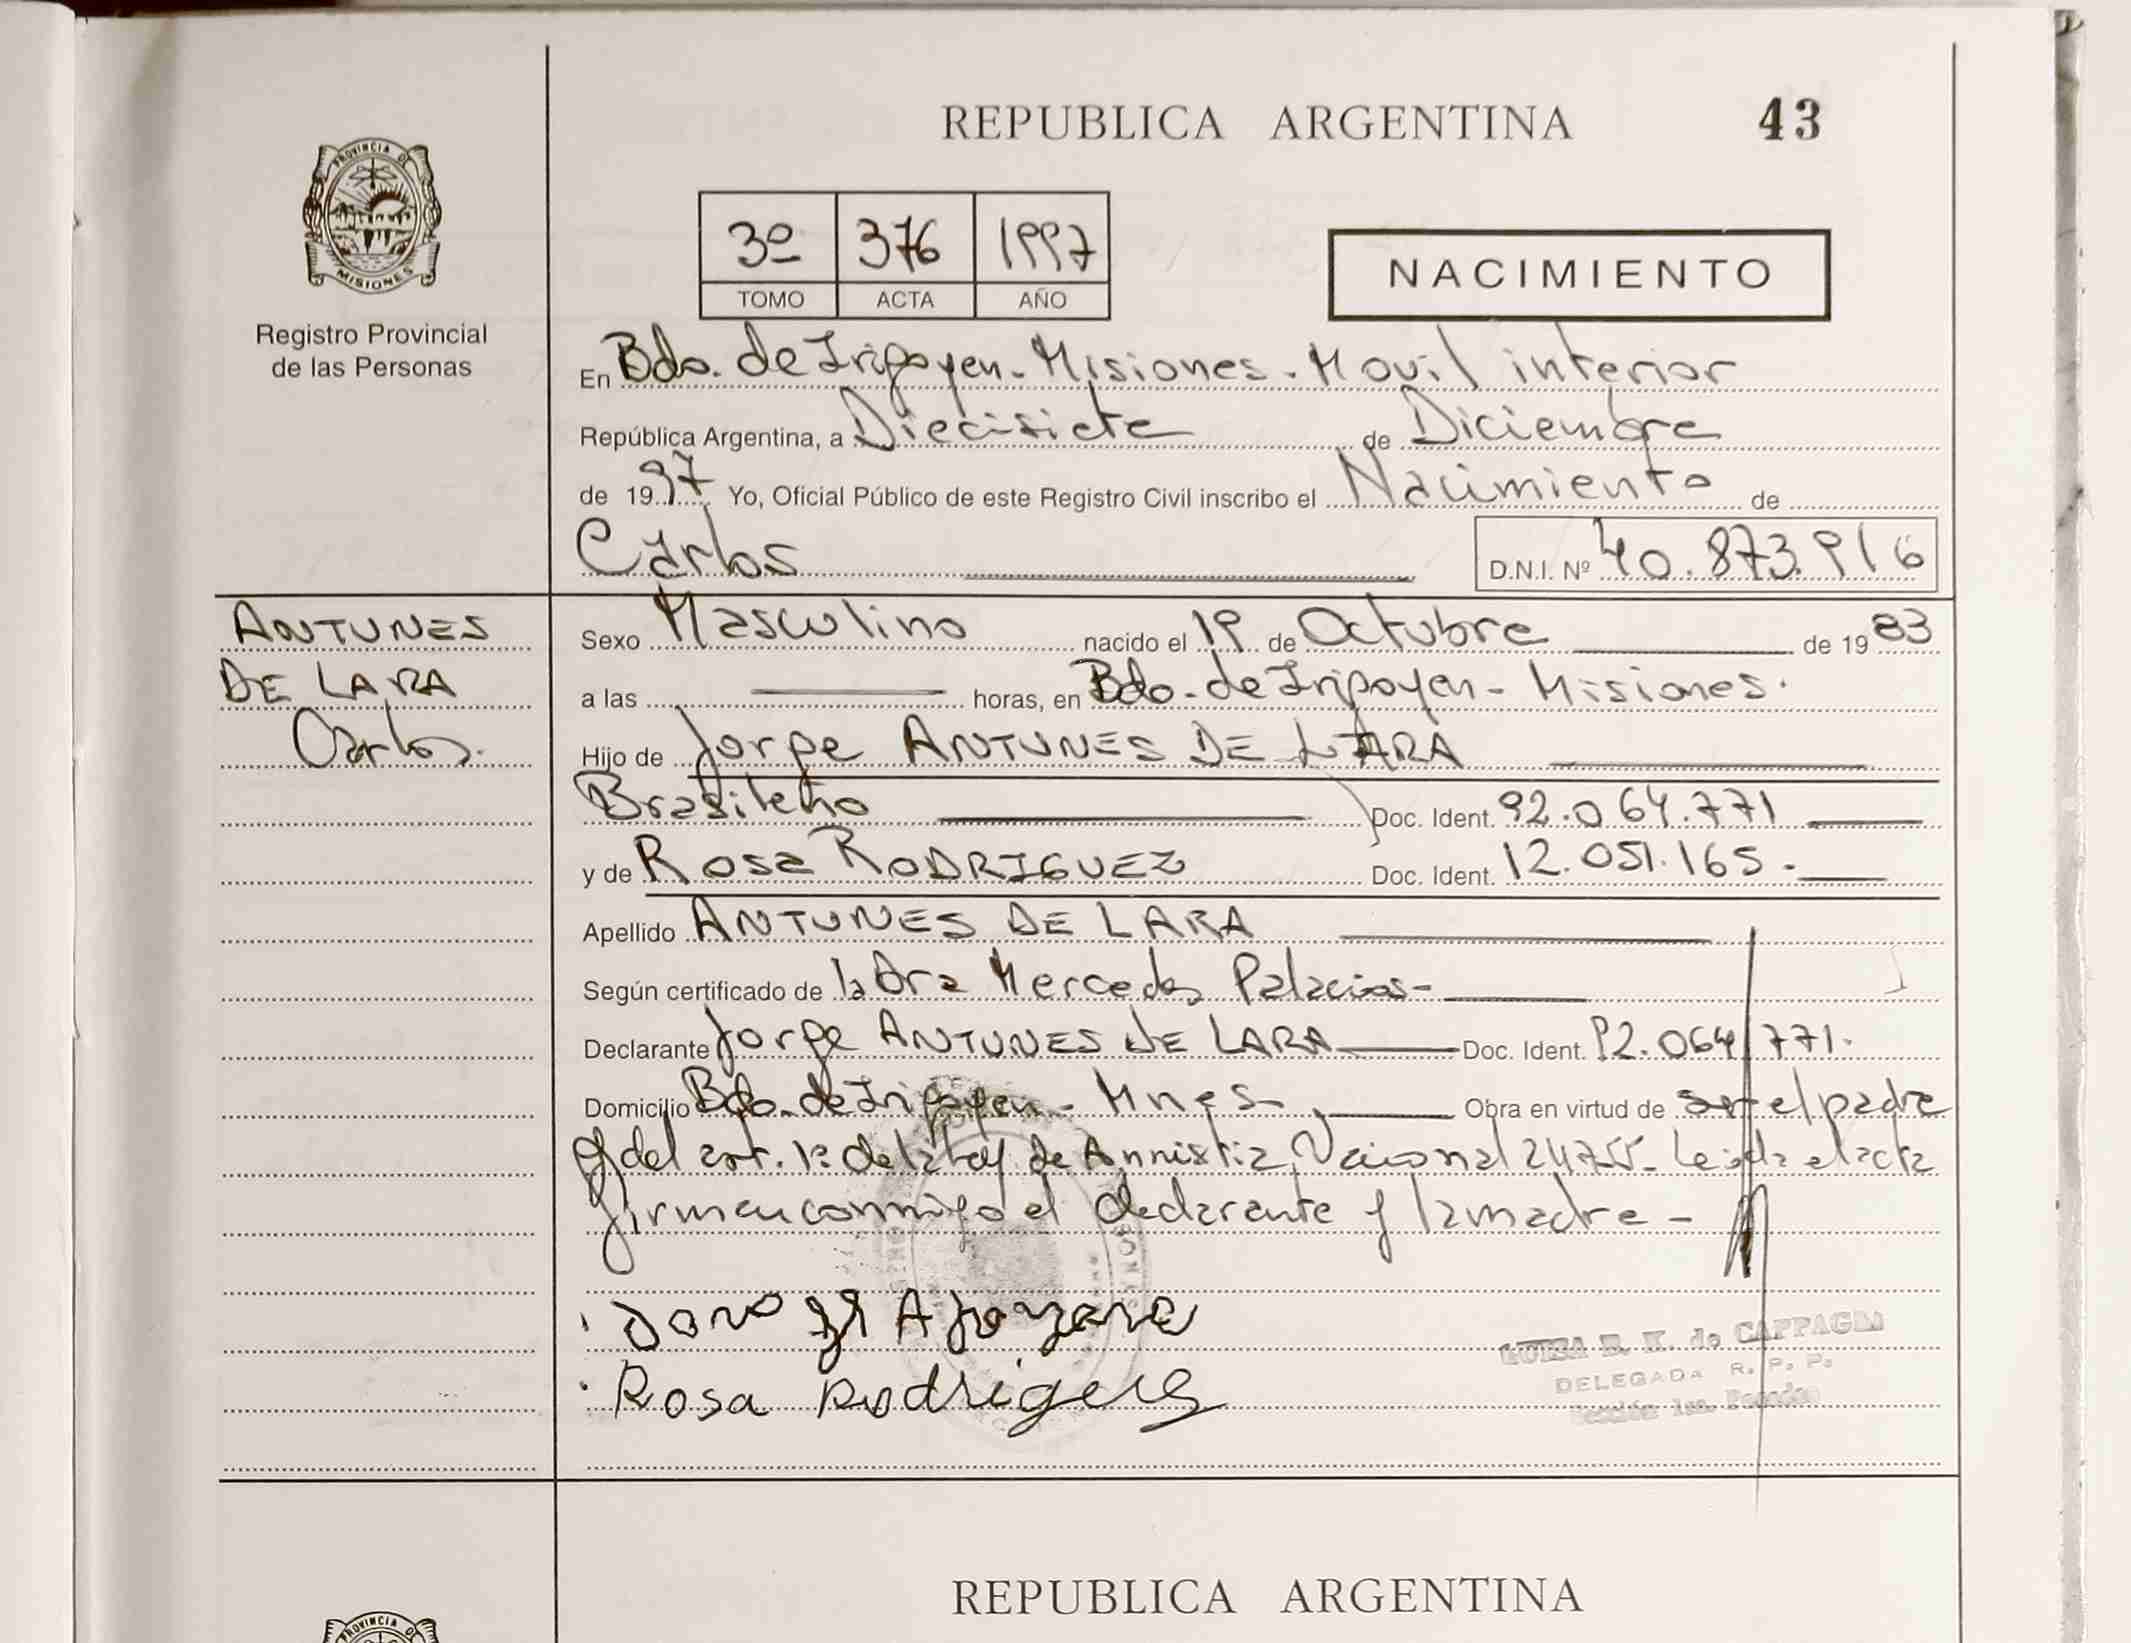 REPUBLICA ARGENTINA
43
PROVINCIA DE
MISIONES
Registro Provincial
de las Personas
3º 376 1997
TOMO ACTA AÑO
NACIMIENTO
En Bdo. de Irigoyen - Misiones - Movil interior
República Argentina, a Diecisiete de Diciembre
de 1997 Yo, Oficial Público de este Registro Civil inscribo el Nacimiento de
Carlos D.N.I. Nº 40.873.916
ANTUNES
DE LARA
Carlos.
Sexo Masculino nacido el 19 de Octubre de 1983
a las horas, en Bdo. de Irigoyen - Misiones.
Hijo de Jorge ANTUNES DE LARA
Brasileño Doc. Ident. 92.064.771
y de Rosa RODRIGUEZ Doc. Ident. 12.051.165.-
Apellido ANTUNES DE LARA
Según certificado de la Dra Mercedes Palacios-
Declarante Jorge ANTUNES DE LARA Doc. Ident. 92.064.771.
Domicilio Bdo. de Irigoyen - Mnes- Obra en virtud de ser el padre
y del art. 1º de la ley de Amnistia Nacional 24755- Leida el acta
firman conmigo el declarante y la madre -
Rosa Rodrigues
LUISA E. K. de CAPPAGLI
DELEGADA R. P. P.
Sección 1ra. Posadas
REPUBLICA ARGENTINA
PROVINCIA DE